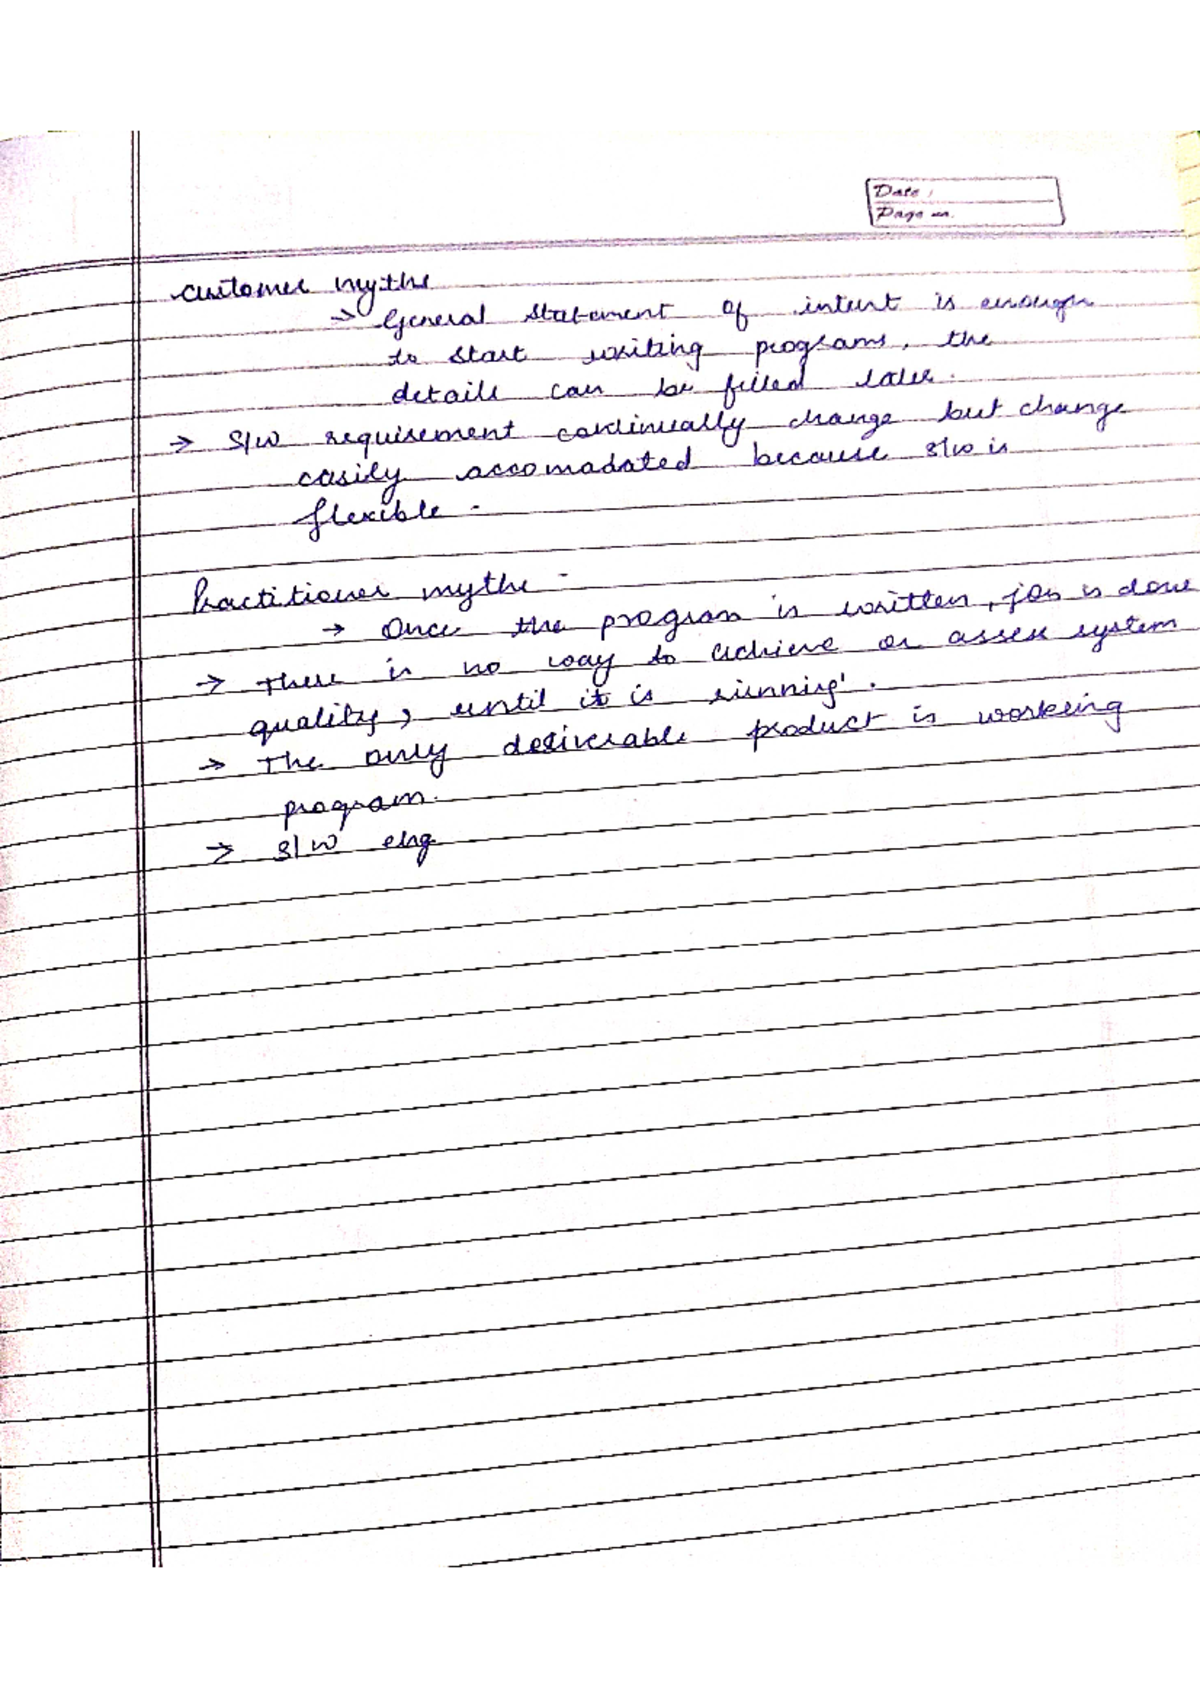 Date :
Page no.
customer myths
→ General statement of intent is enough
to start writing programs, the
details can be filled later.
→ S/W requirement continually change but change
easily accomadated because s/w is
flexible -
Practitioner myths -
→ Once the program is written, job is done
→ There is no way to achieve or assess system
quality, until it is running'.
→ The only deliverable product is working
program.
→ S/W eng